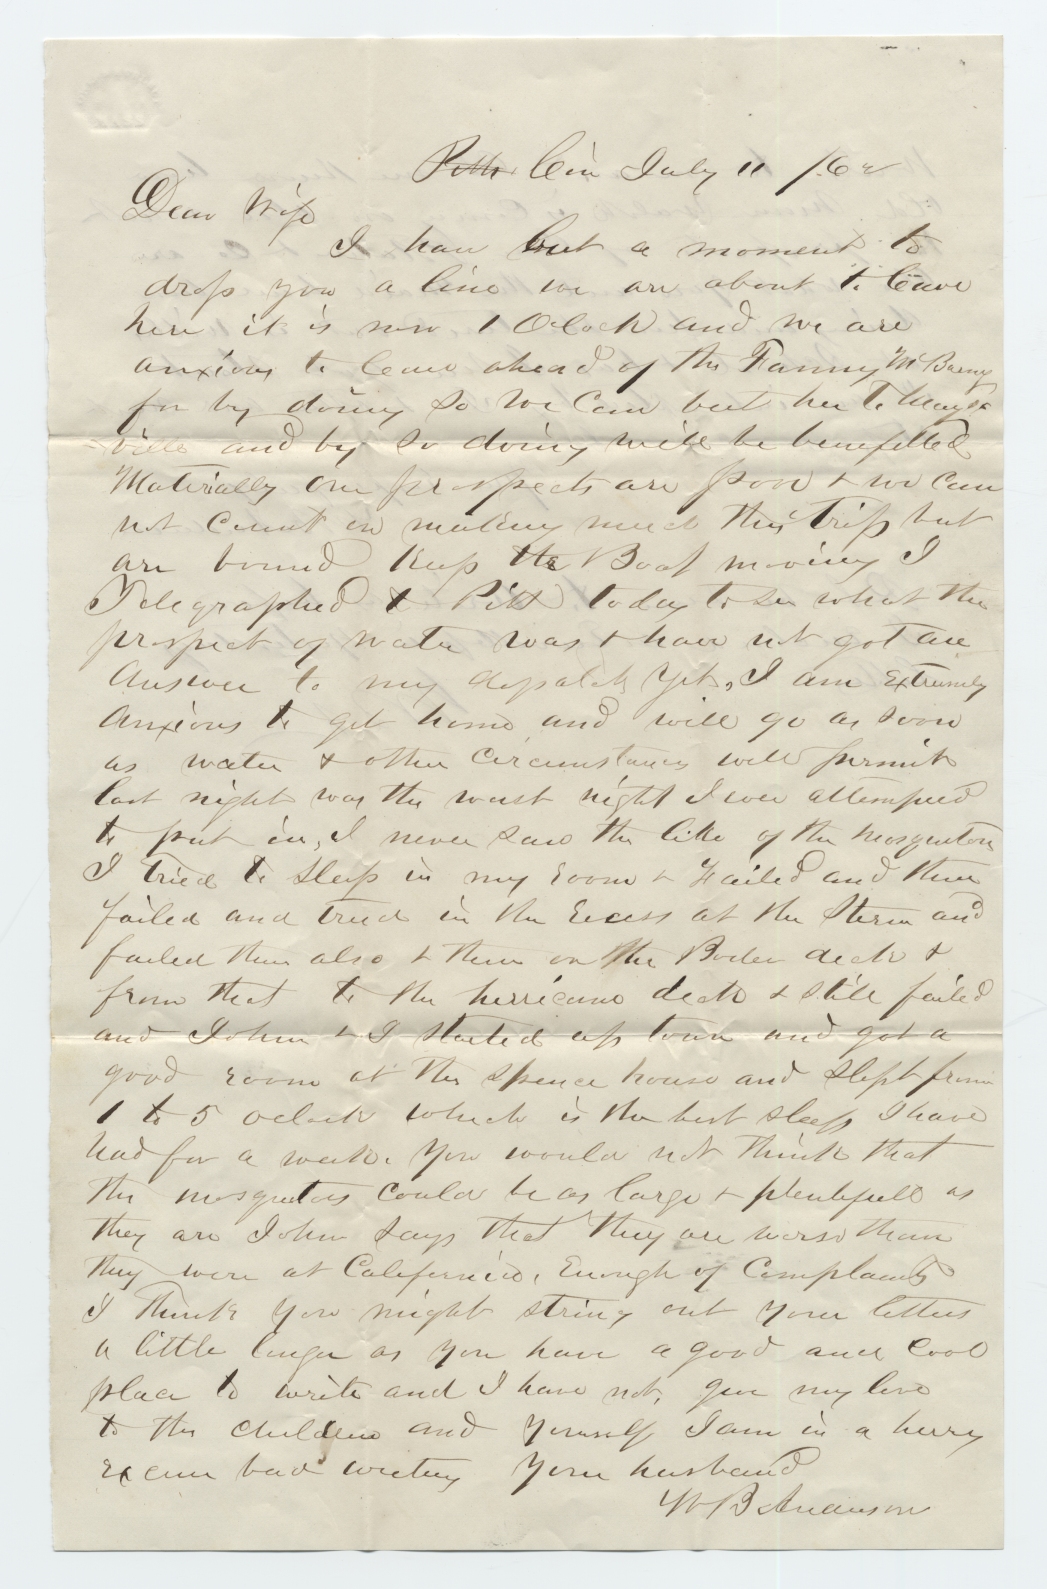 Pitts Cin July 11 /62
Dear Wife
I have but a moment to
drop you a line we are about to leave
here it is now 1 Oclock and we are
anxious to leave ahead of the Fanny McBurny
for by doing so we can beat her to Mays
ville and by so doing will be benefitted
Materially our prospects are poor & we can
not count on making much this trip but
are bound Keep the Boat moving I
Telegraphed to Pitt today to see what the
prospect of water was & have not got an
Answer to my dispatch yet, I am Extremely
Anxious to get home and will go as soon
as water & other circumstances will permit
last night was the worst night I ever attempted
to put in, I never saw the like of the mosquitoes
I tried to sleep in my room & Failed and then
failed and tried in the Recess at the Stern and
failed then also & then on the Boiler deck &
from that to the herricane deck & still failed
and John & I started up town and got a
good room at the Spence house and slept from
1 to 5 oclock which is the best sleep I have
had for a week. You would not think that
the mosquitoes could be as large & plentyfull as
they are John says that they are worse than
they were at California, Enough of Complaints
I think you might string out your letters
a little longer as you have a good and cool
place to write and I have not, give my love
to the children and yourself I am in a hurry
excuse bad writing Your husband
W B Anderson